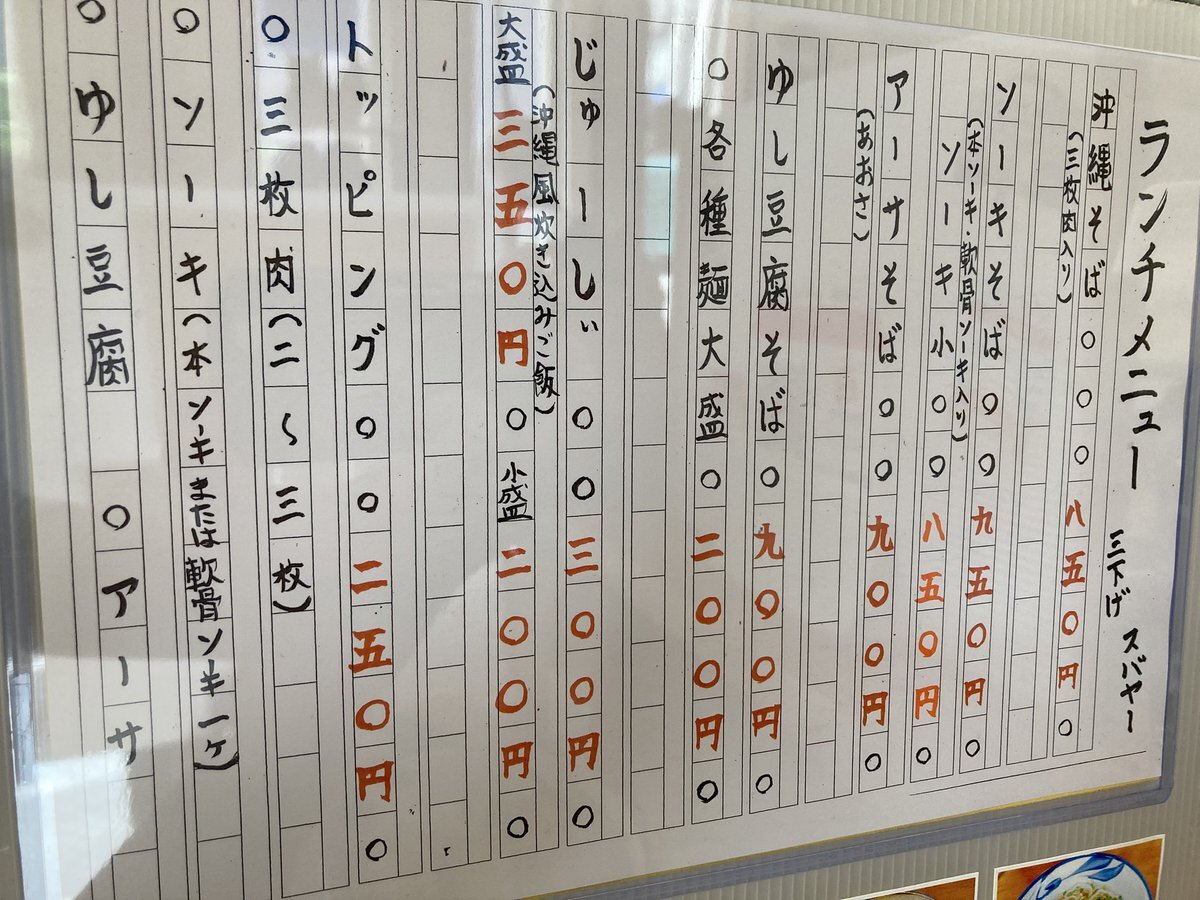 ランチメニュー 三下げ スバヤー
沖縄そば〇〇〇八五〇円〇
(三枚肉入り)
ソーキそば〇〇九五〇円〇
(本ソーキ・軟骨ソーキ入り)
ソーキ小〇〇八五〇円〇
アーサそば〇〇九〇〇円〇
(あおさ)
ゆし豆腐そば〇九〇〇円〇
〇各種麺大盛〇二〇〇円〇
じゅーしぃ〇〇三〇〇円〇
(沖縄風炊き込みご飯)
大盛三五〇円〇小盛二〇〇円〇
トッピング〇〇二五〇円〇
〇三枚肉(二〜三枚)
〇ソーキ(本ソーキまたは軟骨ソーキ一ヶ)
〇ゆし豆腐 〇アーサ